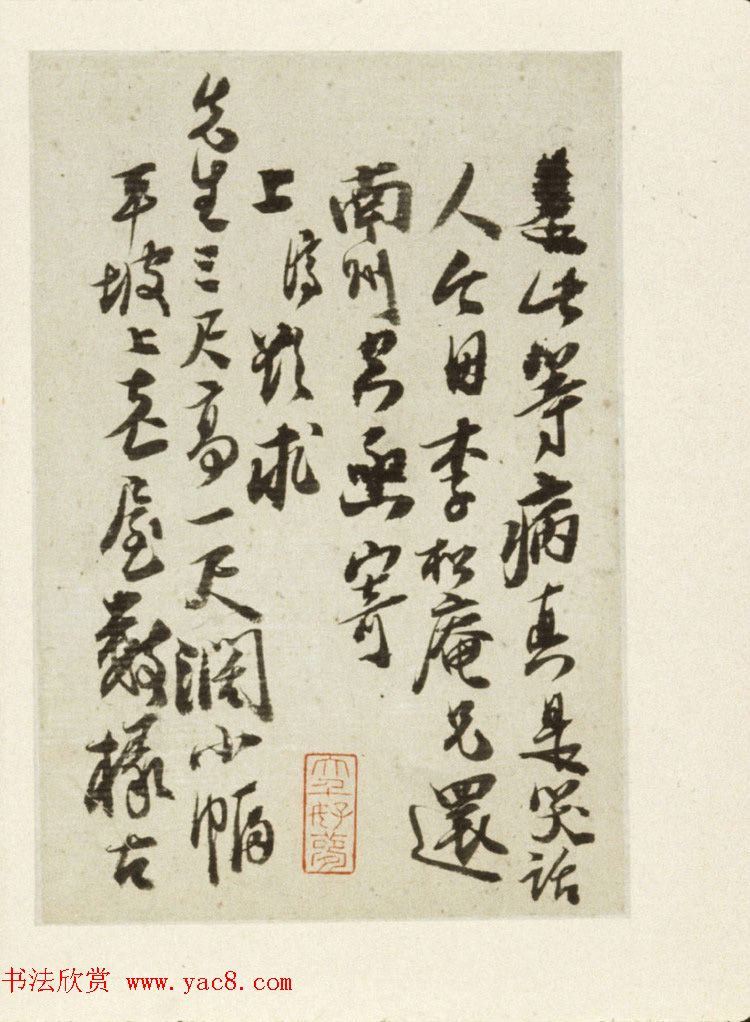 此等病真是笑話
人今因李松庵兄還
南州空函寄
上濟欵求
先生三尺高一尺濶小幅
平坡上老屋數椽古
书法欣赏 www.yac8.com